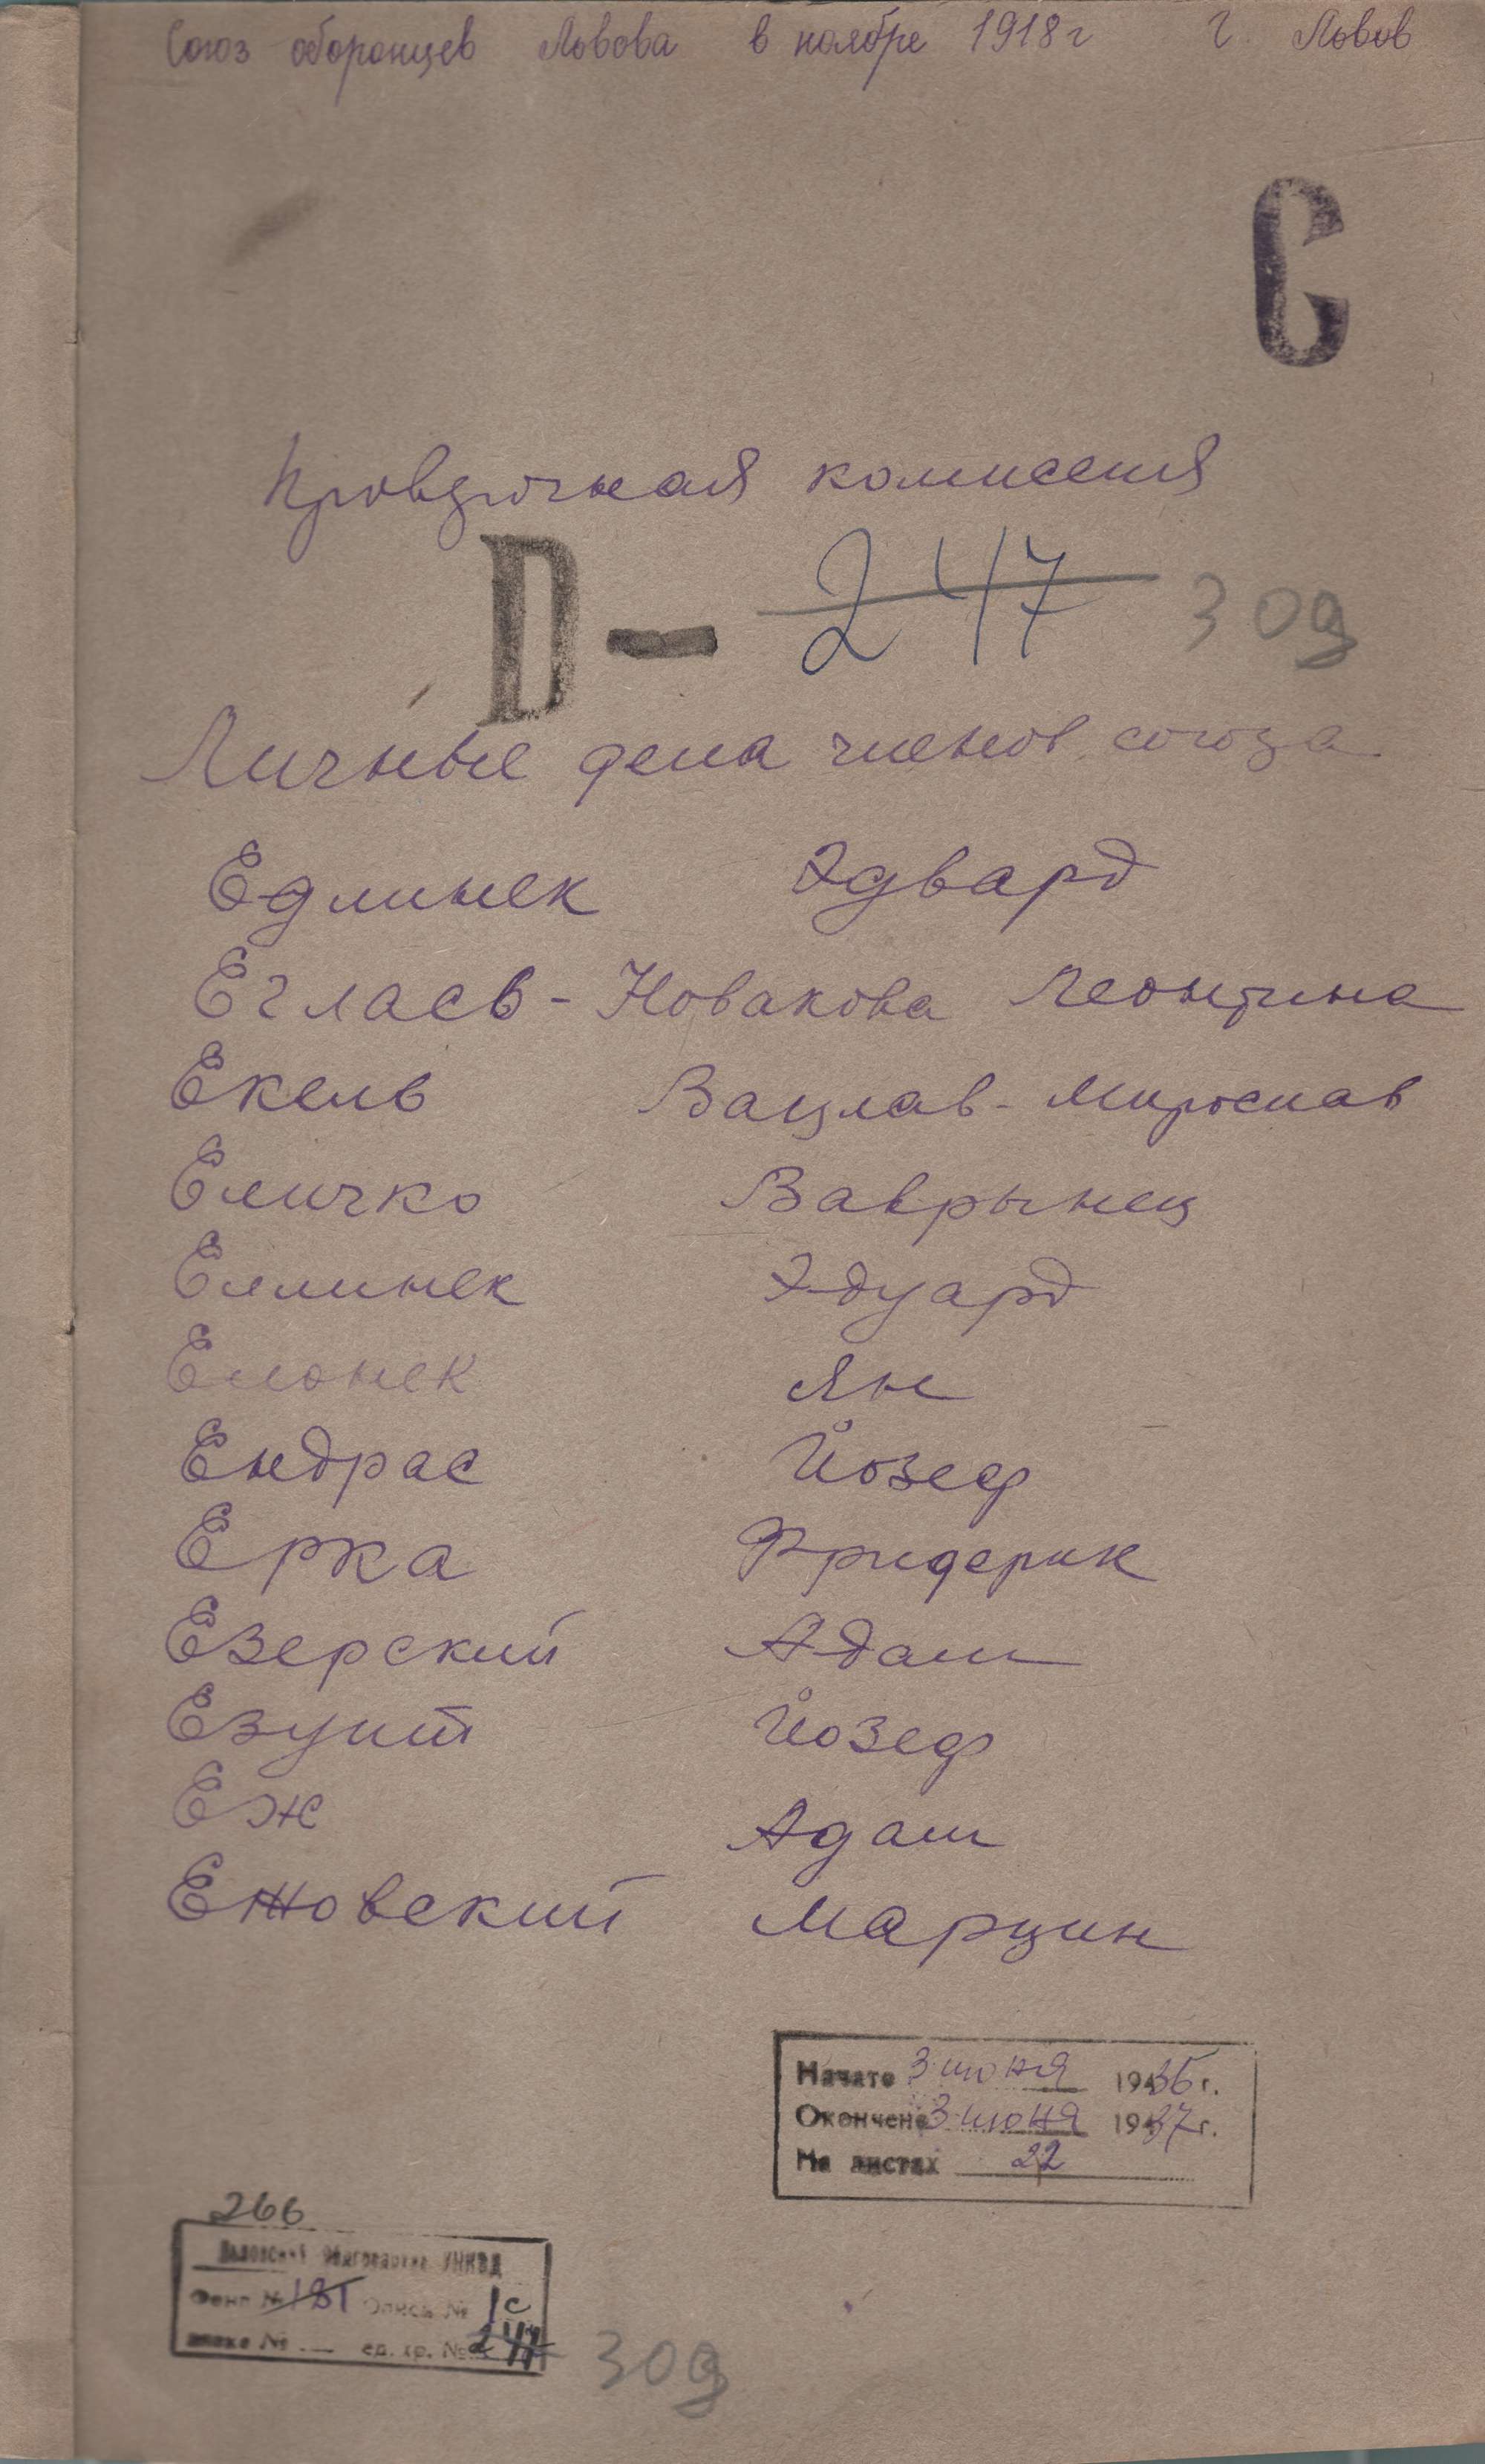 Союз оборонцев Львова в ноябре 1918 г г. Львов
С
Проверочная комиссия
D — 247 309
Личные дела членов союза
Едлинек Эдвард
Егласв - Новакова Леонтина
Екель Вацлав - Мирослав
Еличко Ваврынец
Еллинек Эдуард
Елонек Ян
Ендрас Йозеф
Ерка Фридерик
Езерский Адам
Езуит Йозеф
Еж Адам
Ежовский Марцин
Начато 3 июня 1935 г.
Окончено 3 июня 1937 г.
На листах 22
266
Львовский Облгосархив УНКВД
Фонд № 181 Опись № 1с
связка № ед. хр. № 247
309